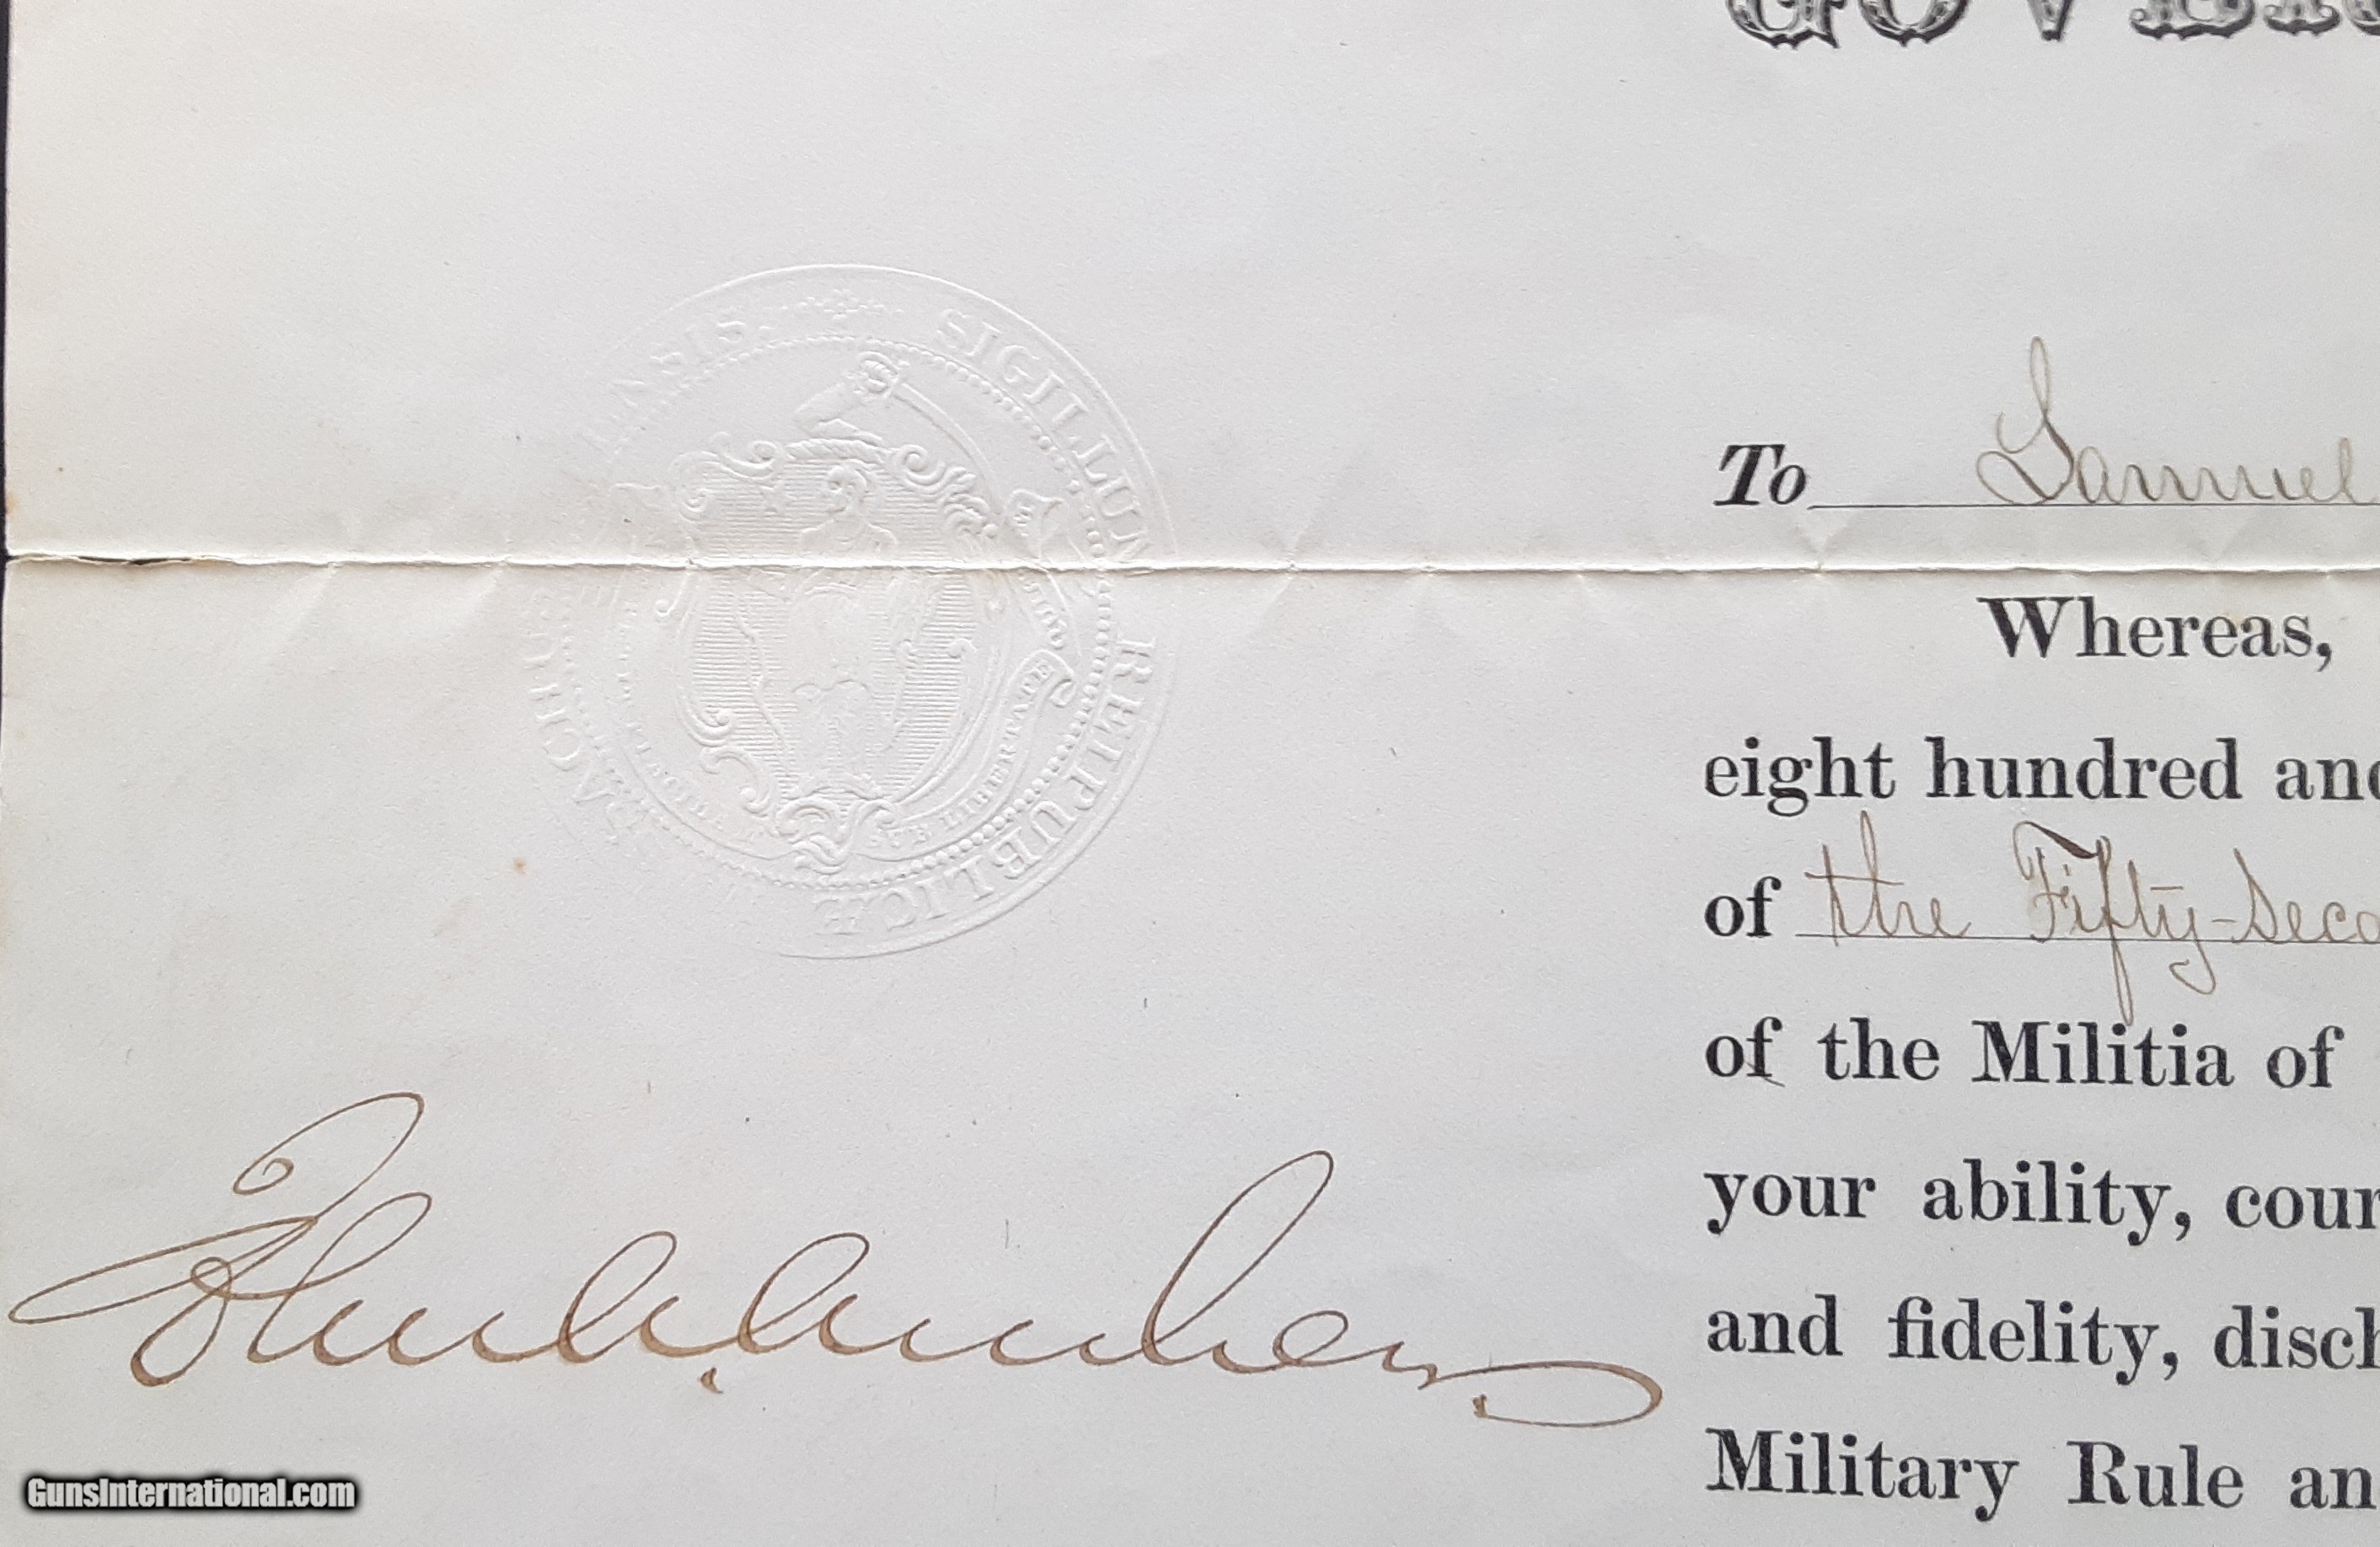 GOVER
SIGILLUM REIPUBLICÆ
ENSIS
SUB LIBERTATE
To Samuel
Whereas,
eight hundred and
of the Fifty-Seco
of the Militia of
your ability, cour
and fidelity, disch
Military Rule an
GunsInternational.com